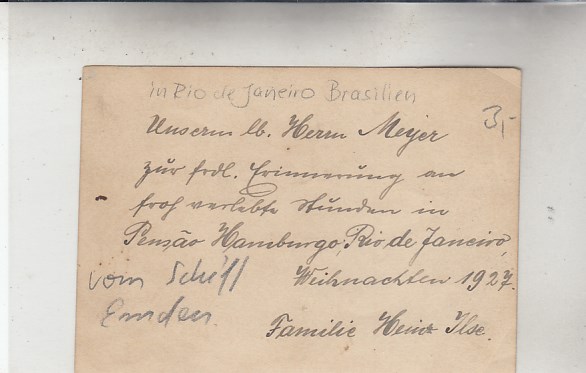 in Rio de Janeiro Brasilien
3,-
Unserm lb. Herrn Meyer
zur frdl. Erinnerung an
froh verlebte Stunden in
Pensão Hamburgo, Rio de Janeiro,
Weihnachten 1927.
vom Schiff
Emden.
Familie Heinz Ilse.